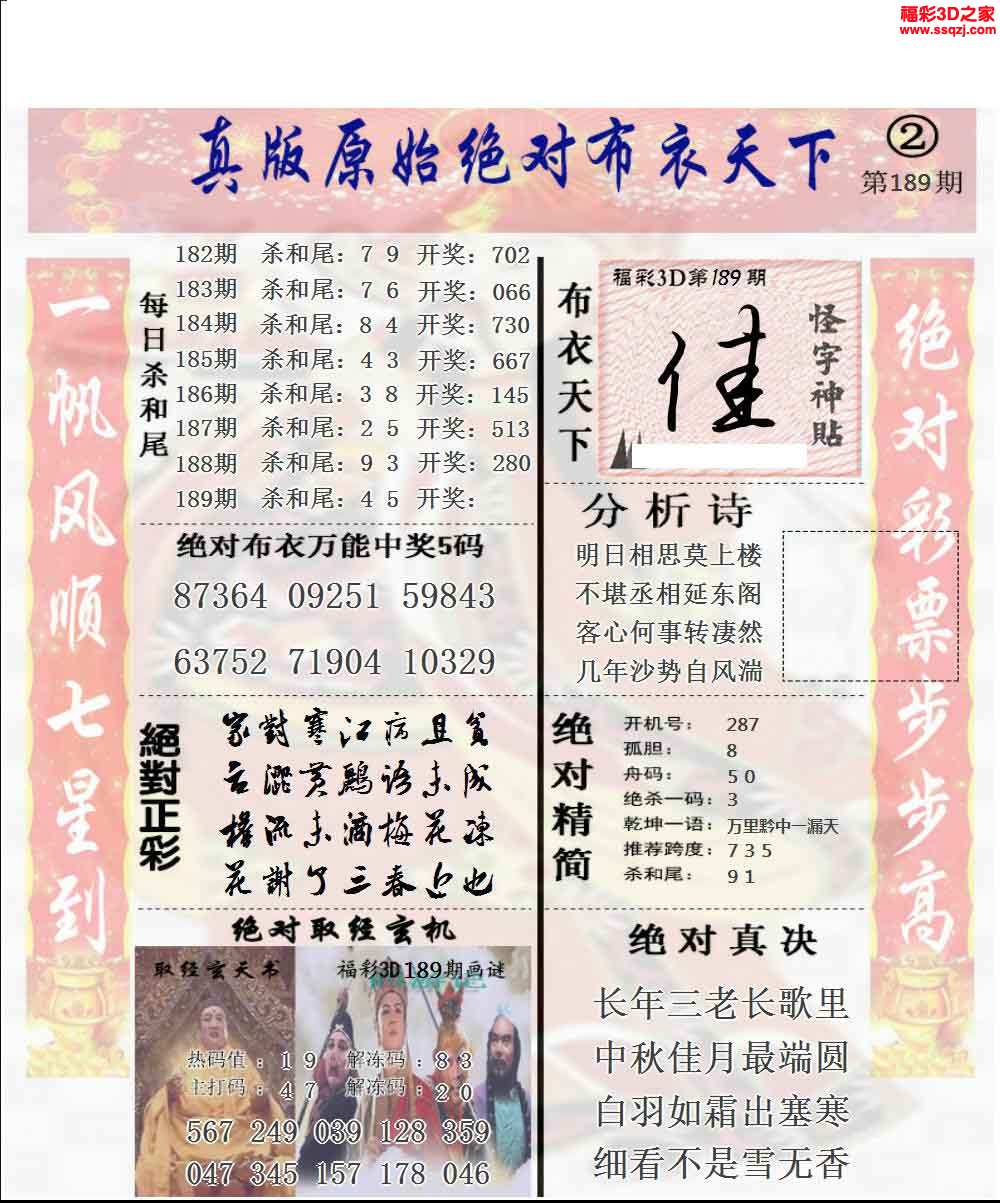 福彩3D之家
www.ssqzj.com
真版原始绝对布衣天下
②
第189期
一帆风顺七星到
每日杀和尾
182期 杀和尾：7 9 开奖：702
183期 杀和尾：7 6 开奖：066
184期 杀和尾：8 4 开奖：730
185期 杀和尾：4 3 开奖：667
186期 杀和尾：3 8 开奖：145
187期 杀和尾：2 5 开奖：513
188期 杀和尾：9 3 开奖：280
189期 杀和尾：4 5 开奖：
绝对布衣万能中奖5码
87364 09251 59843
63752 71904 10329
絕對正彩
家對寒江病且貧
言澀黄鸝语未成
檐流未滴梅花凍
花謝了三春近也
绝对取经玄机
取经玄天书
福彩3D189期画谜
热码值：1 9 解冻码：8 3
主打码：4 7 解冻码：2 0
567 249 039 128 359
047 345 157 178 046
布衣天下
福彩3D第189期
佳
怪字神貼
分析诗
明日相思莫上楼
不堪丞相延东阁
客心何事转凄然
几年沙势自风湍
绝对精简
开机号：287
孤胆：8
舟码：5 0
绝杀一码：3
乾坤一语：万里黔中一漏天
推荐跨度：7 3 5
杀和尾：9 1
绝对真决
长年三老长歌里
中秋佳月最端圆
白羽如霜出塞寒
细看不是雪无香
绝对彩票步步高